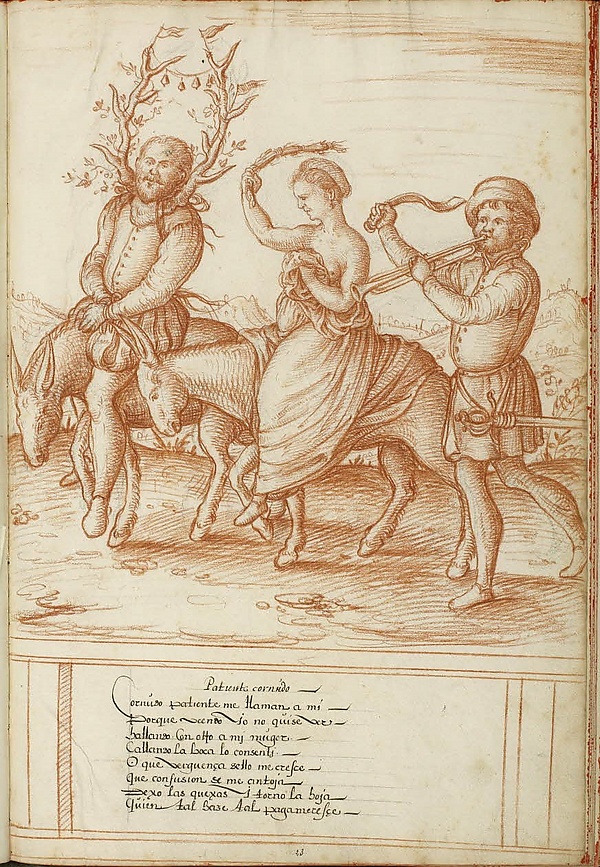 Patiente cornudo
Cornudo patiente me llaman a mi
Porque veendo io no quise ver
hallando con otro a mi muger
Callando la boca lo consenti
O que verguença dello me cresce
Que confusion se me antoja
Dexo las quexas i torno la hoja
Quien tal haze tal paga meresce